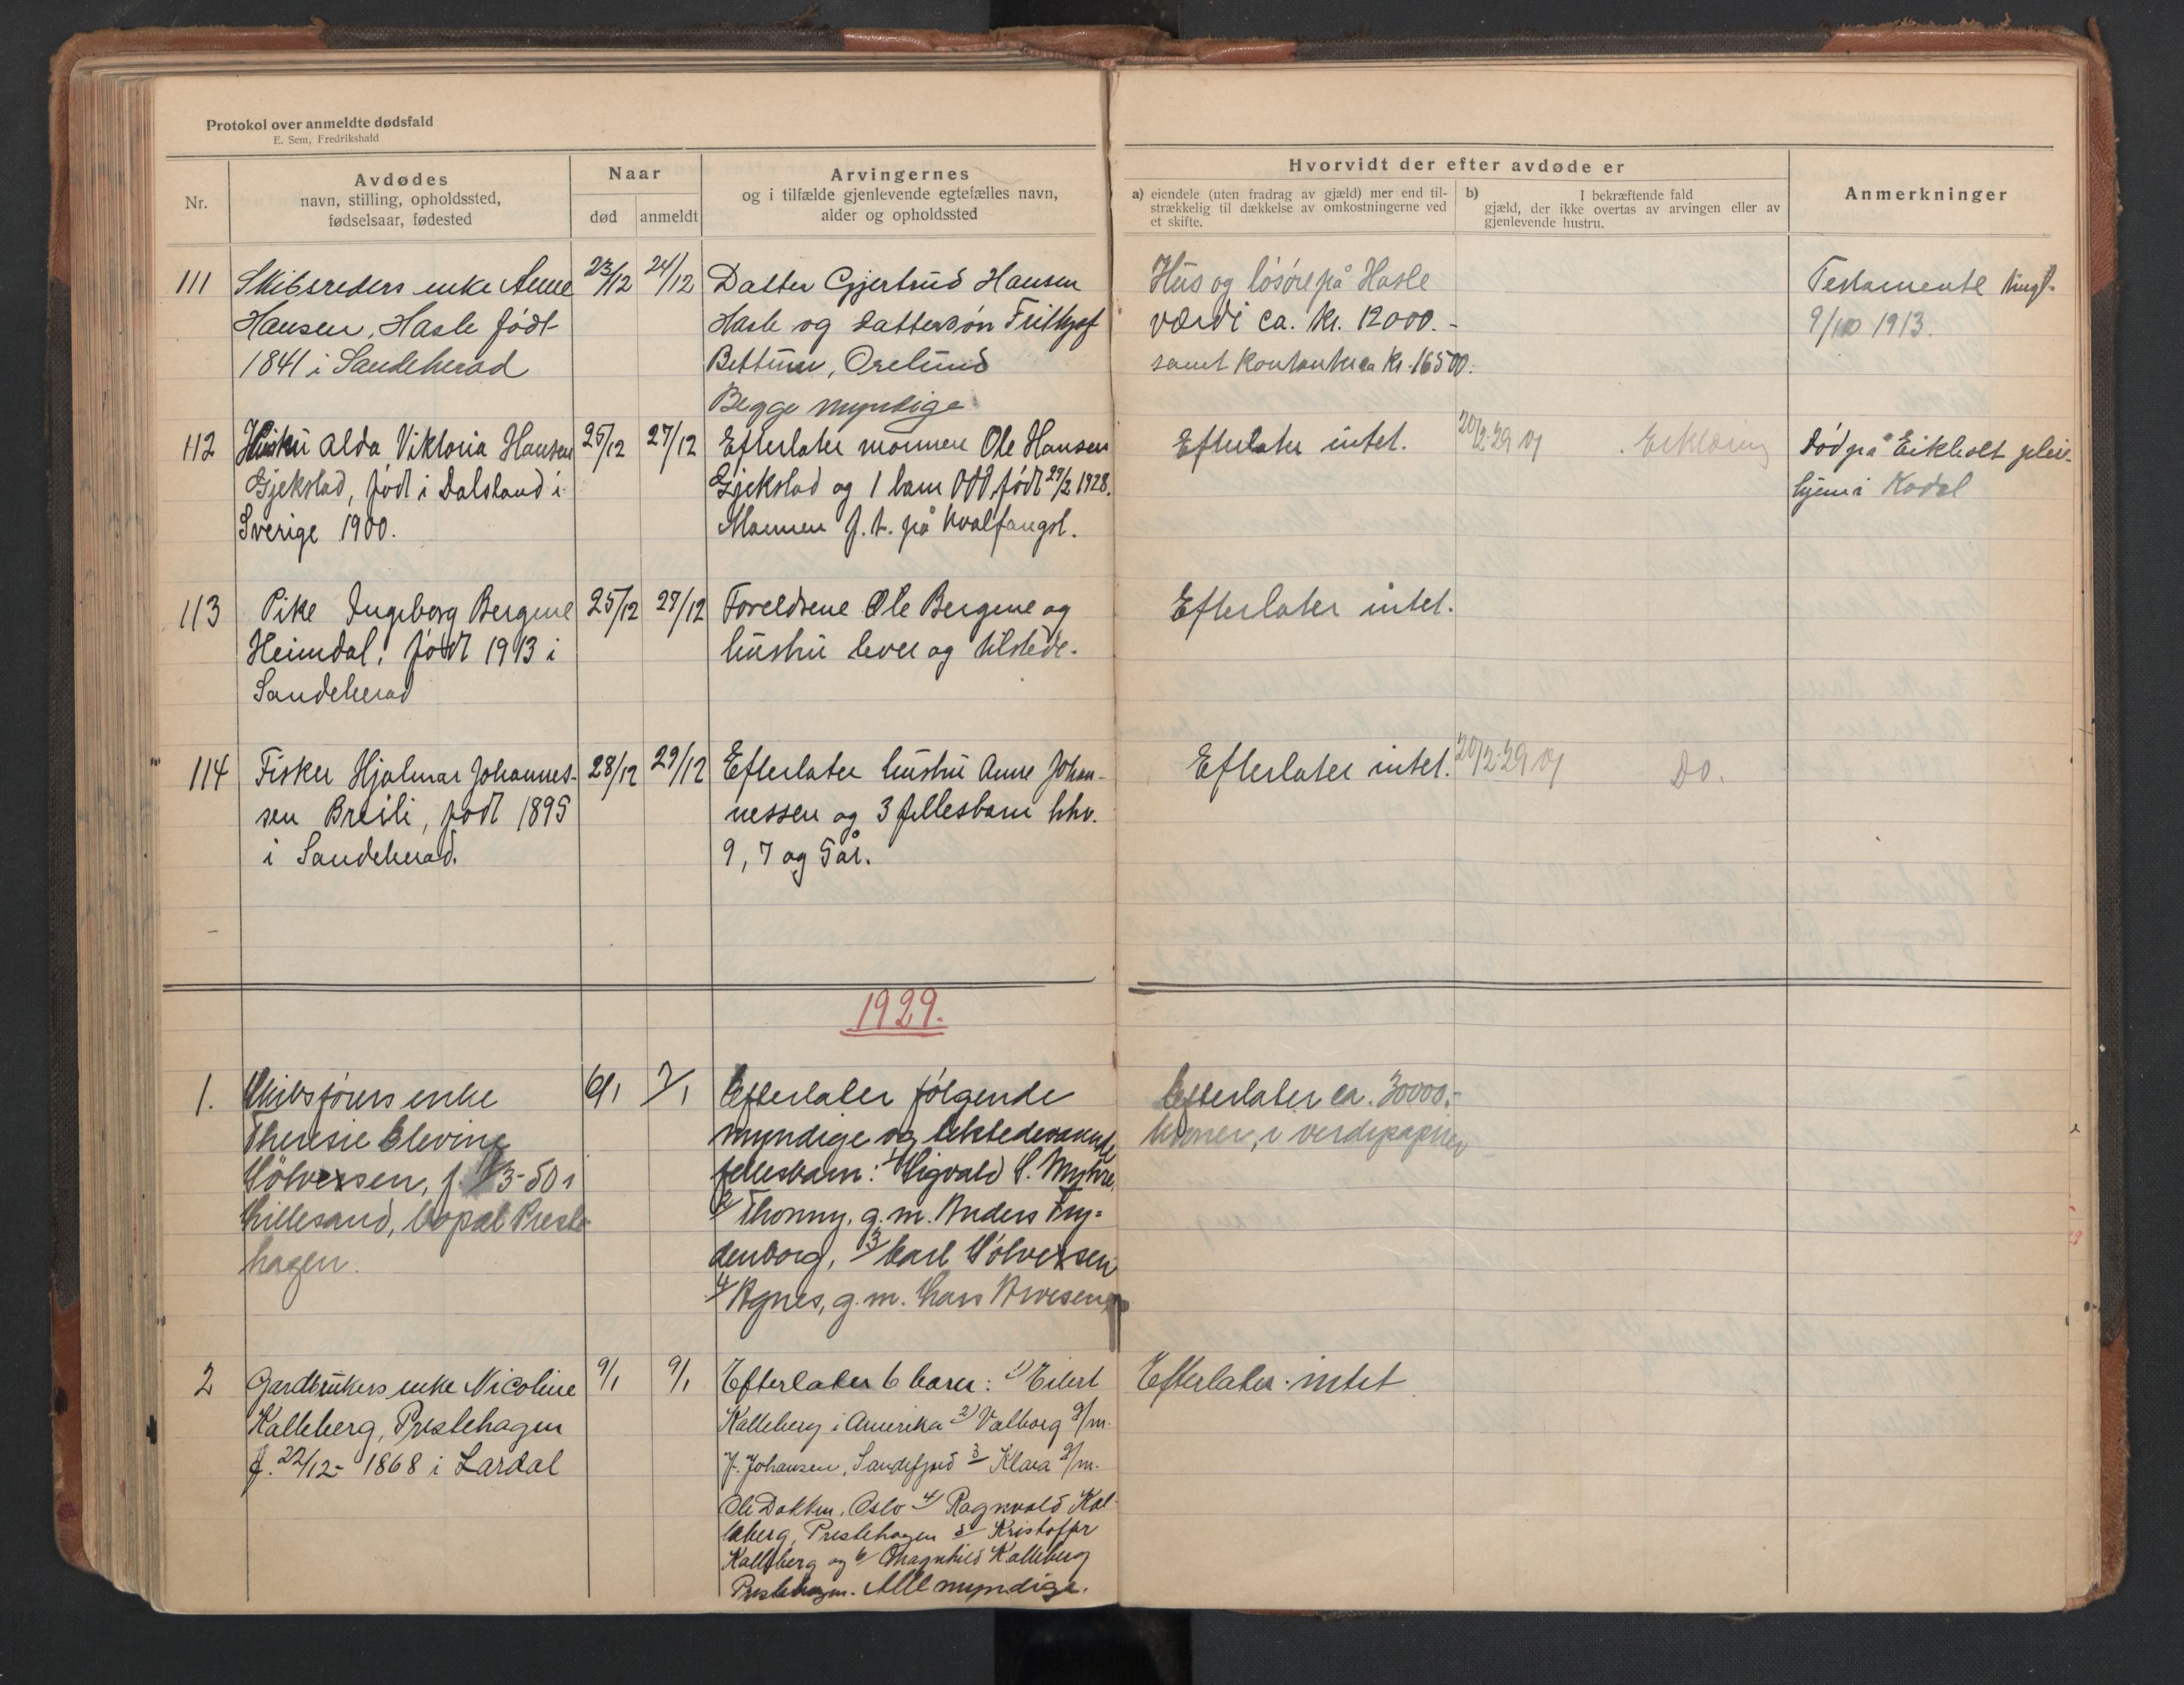 Protokol over anmeldte dødsfald
E. Sem, Fredrikshald
Nr.
Avdødes
navn, stilling, opholdssted,
fødselsaar, fødested
Naar
død
anmeldt
Arvingernes
og i tilfælde gjenlevende egtefælles navn,
alder og opholdssted
Hvorvidt der efter avdøde er
a) eiendele (uten fradrag av gjæld) mer end til-
strækkelig til dækkelse av omkostningerne ved
et skifte.
b) I bekræftende fald
gjæld, der ikke overtas av arvingen eller av
gjenlevende hustru.
Anmerkninger
111
Skibsreders enke Anne
Hansen, Hasle født
1841 i Sandeherad
23/12
24/12
Datter Gjertrud Hansen
Hasle og dattersøn Frithjof
Bettum, Orelund
Begge myndige
Hus og løsøre på Hasle
værdi ca. kr. 12000.-
samt kontanter ca kr. 16500.
Testamente tingl.
9/10 1913.
112
Hustru Alda Viktoria Hansen
Gjekstad, født i Dalsland i
Sverige 1900.
25/12
27/12
Efterlater mannen Ole Hansen
Gjekstad og 1 barn Odd, født 29/2 1928.
Mannen p. t. på hvalfangst.
Efterlater intet.
20/12-29
Erklæring
Død på Eikholt pleie-
hjem i Kodal
113
Pike Ingeborg Bergene
Heimdal, født 1913 i
Sandeherad
25/12
27/12
Foreldrene Ole Bergene og
hustru lever og tilstede.
Efterlater intet.
114
Fisker Hjalmar Johannes-
sen Breili, født 1895
i Sandeherad.
28/12
29/12
Efterlater hustru Anne Johan-
nessen og 3 fellesbarn hhv.
9, 7 og 5 år.
Efterlater intet.
20/12-29
Do.
1929.
1.
Skibsførers enke
Theresie Elevine
Sölversen, f. 1/3-50 i
Lillesand, bopæl Preste-
hagen.
6/1
7/1
Efterlater følgende
myndige og tilstedeværende
fellesbarn: 1/ Sigvald S. Myhre,
2/ Thonny, g. m. Anders Fry-
denborg, 3/ Carl Sölversen
4/ Agnes, g. m. Lars Arvesen
Efterlater ca. 30000.-
kroner, i verdipapirer
2
Gardbrukers enke Nicoline
Kalleberg, Prestehagen
f. 22/12- 1868 i Lardal
9/1
9/1
Efterlater 6 barn: 1) Eilert
Kalleberg i Amerika 2) Valborg g/m.
J. Johansen, Sandefjord 3 Klara g/m.
Ole Dokken, Oslo 4) Ragnvald Kal-
leberg, Prestehagen 5 Kristoffer
Kalleberg og 6/ Magnhild Kalleberg
Prestehagen. Alle myndige.
Efterlater intet